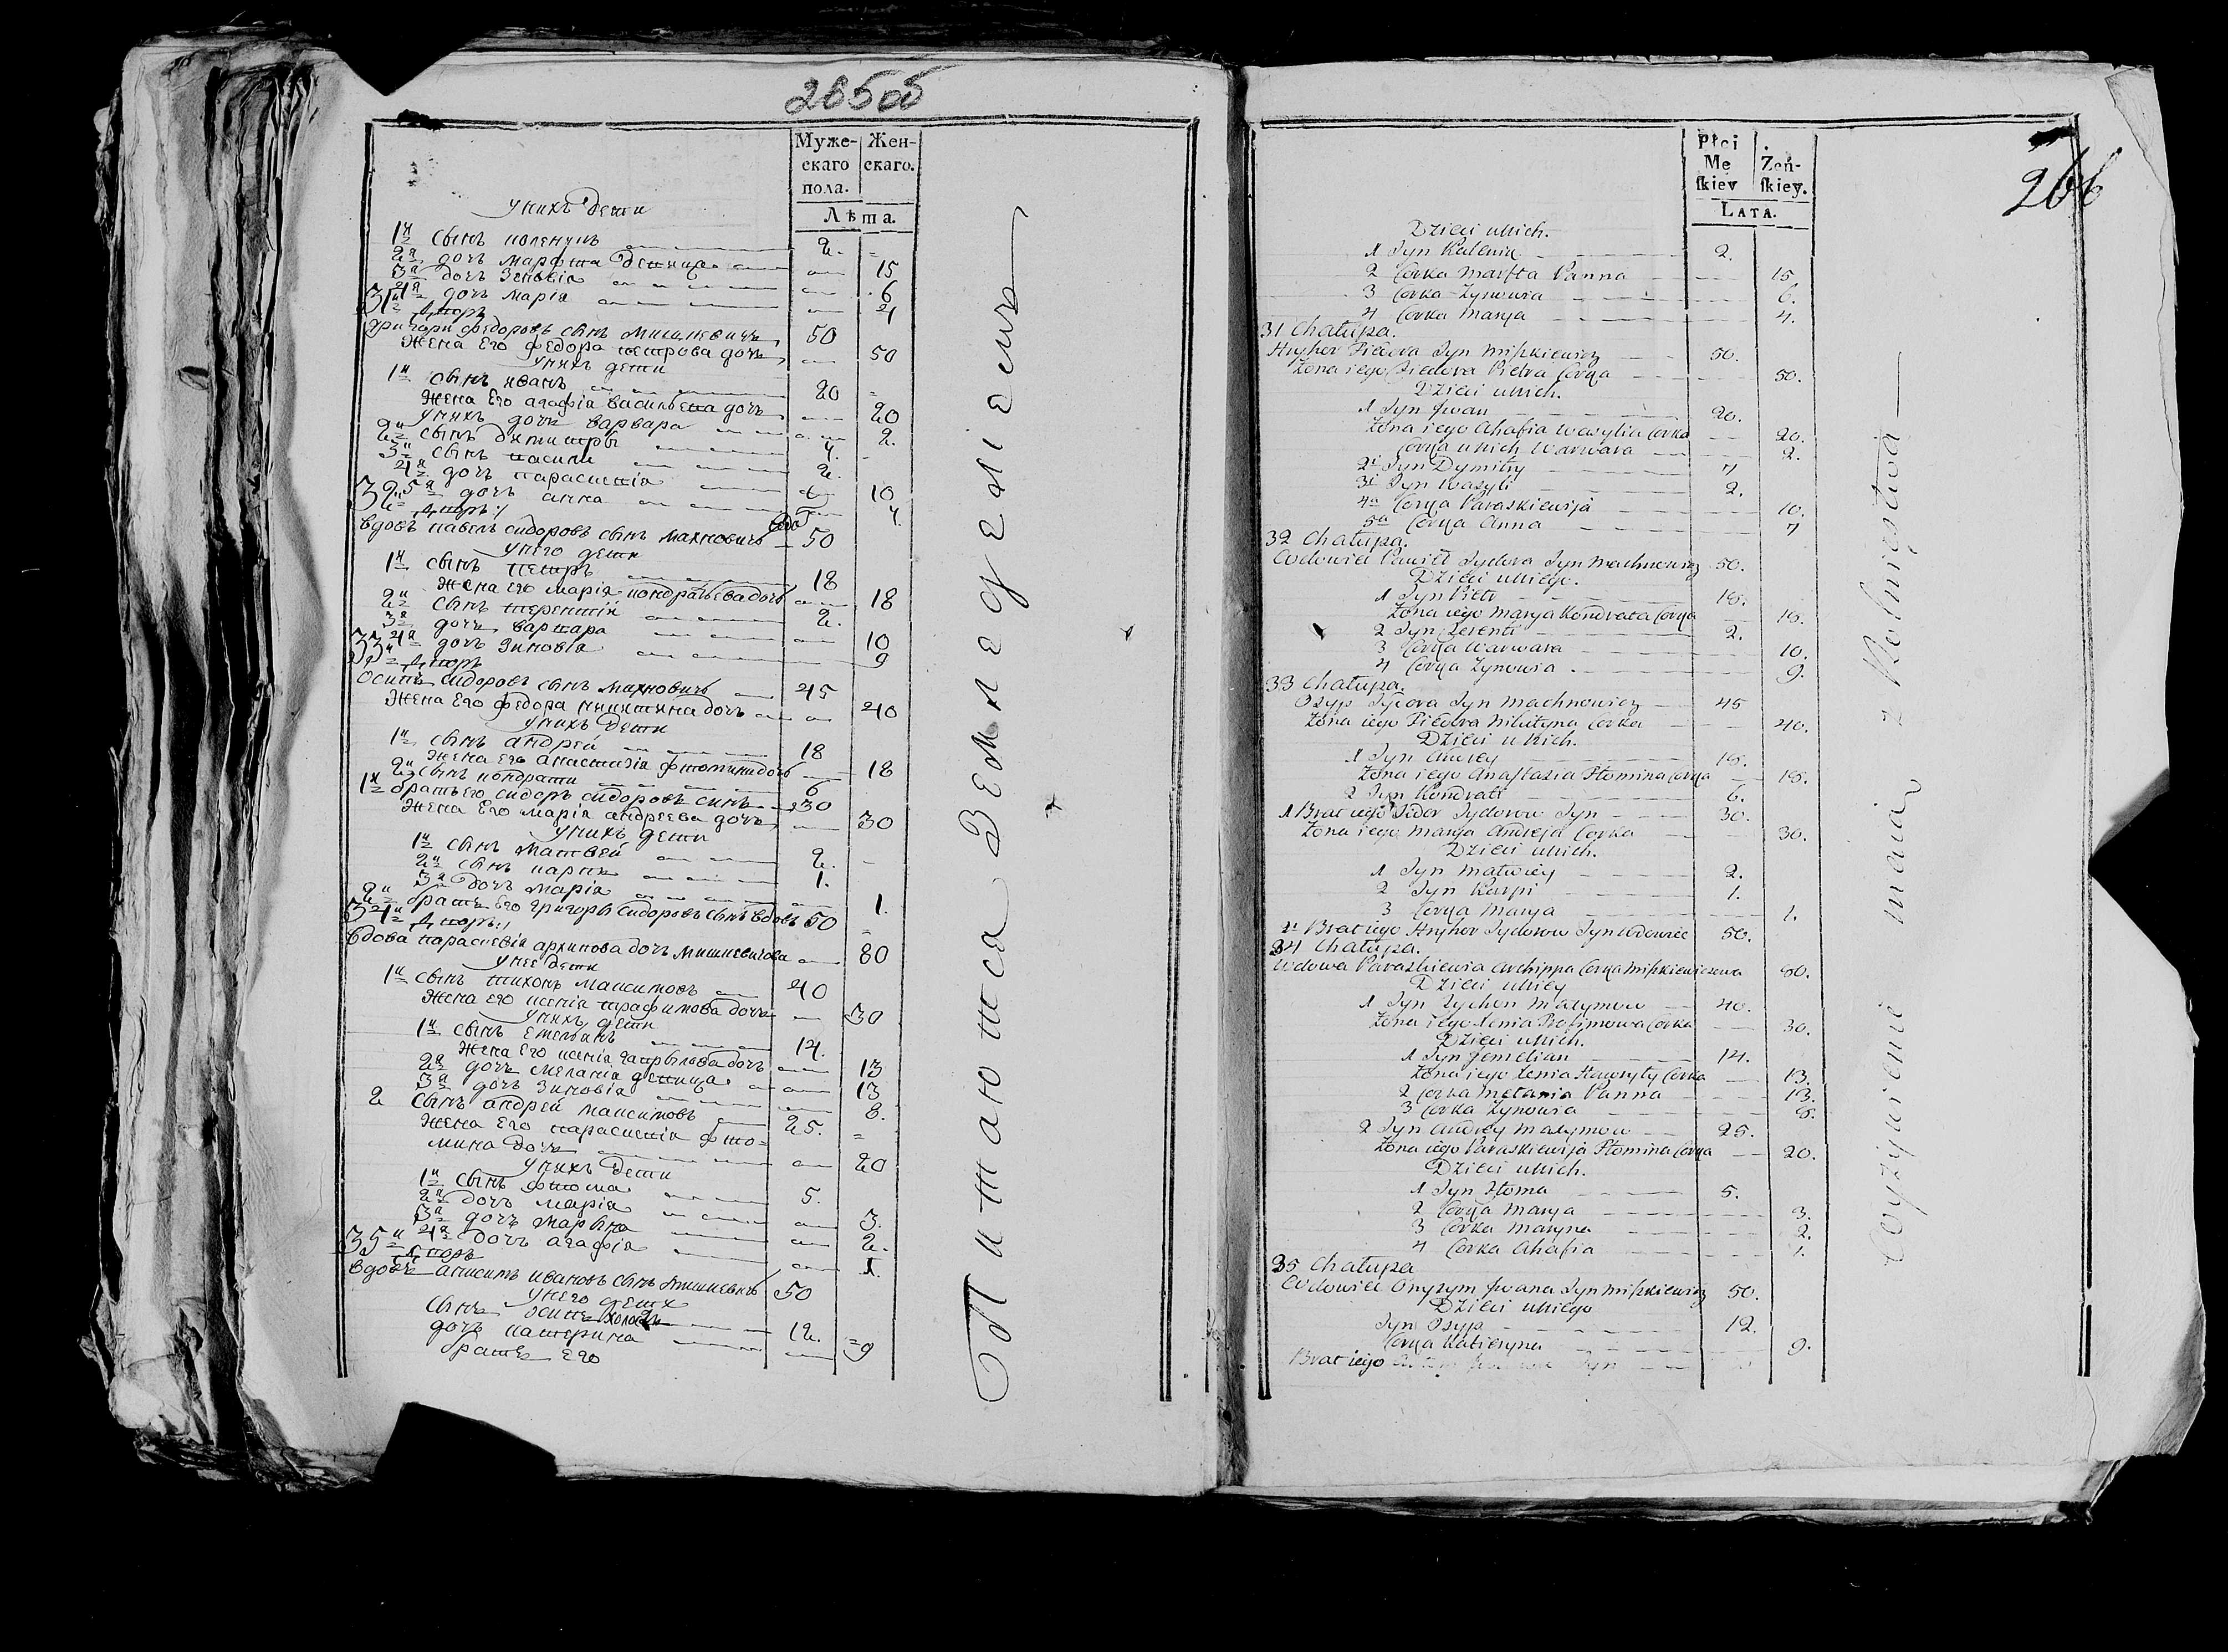 265 об
Муже-
скаго
пола.
Жен-
скаго.
Лѣта.
унихъ дети
1й сынъ каленикъ 2.
2я дочъ марфта девица 15
3я дочъ Зеновiя 6
4я дочъ марiя 4
31й Дворъ
григори федоровъ сынъ мишкевичъ 50
жена Его федора петрова дочъ 50
унихъ дети
1й сынъ иванъ 20
жена Его агафiя василъева дочъ 20
унихъ дочъ варвара 2.
2й сынъ дмитры 7.
3й сынъ васили 2.
4я дочъ параскевiя 10
5я дочъ анна 7.
32й Дворъ:/
вдовъ павелъ сидоровъ сынъ махновичъ 50
унего дети
1й сынъ петръ 18
жена Его марiя кондратъева дочъ 18
2й сынъ терентiй 2.
3я дочъ варвара 10
4я дочъ зиновiя 9
33й Дворъ
Осипъ сидоровъ сынъ махновичъ 45
жена Его федора никитина дочъ 40
унихъ дети
1й сынъ андрей 18
жена Его анастазiя фтомина дочъ 18
2й сынъ кондрати 6
1й братъ его сидоръ сидоровъ синъ 30
жена Его марiя андреева дочъ 30
унихъ дети
1й сынъ матвей 2.
2й сынъ карпъ 1.
3я дочъ марiя 1.
2й братъ Его григоры сидоровъ сынъ вдовъ 50
34й Дворъ:/
вдова параскевiя архипова дочъ мишкевичова 80
унее дети
1й сынъ тихонъ максимовъ 40
жена его ксенiя трафимова дочъ 30
унихъ дети
1й сынъ емелiянъ 14.
жена Его ксенiя гаврылова дочъ 13
2я дочъ меланiя девица 13
3я дочъ зиновiя 8.
2 сынъ андрей максимовъ 25.
жена Его параскевiя фто=
мина дочъ 20
унихъ дети
1й сынъ фтома 5.
2я дочъ марiя 3.
3я дочъ марына 2.
4я дочъ агафiя 1.
35й Дворъ
вдовъ анисимъ ивановъ сынъ мишкевичъ 50
унего дети
сынъ осипъ холостъ 12.
дочъ катерина 9
братъ его
Питаются Земледелiемъ
266
Płci
Mę
ſkiey
Żeń-
ſkiey.
LATA.
Dzieci unich.
1 Syn Kalenik 2.
2 Corka Marfta Panna 15.
3 Corka Zynowia 6.
4 Corka Marya 4.
31 Chałupa.
Hryhor Fiedora Syn Miſzkiewicz 50.
Żona iego Fiedora Pietra Corya 50.
Dzieci unich.
1 Syn Jwan 20.
Żona iego Ahafia Wasylia Corka 20.
Corya unich Warwara 2.
2i Syn Dymitry 7
3i Syn Wasyli 2.
4a Corya Paraskiewija 10.
5a Corya Anna 7
32 Chałupa.
Wdowiec Paweł Sydora Syn Machnowicz 50.
Dzieci uniego.
1 Syn Pietr 18.
Żona iego Marya Kondrata Corya 18.
2 Syn Terenti 2.
3 Corya Warwara 10.
4 Corya Zynowia 9.
33 Chałupa.
Osyp Sydora Syn Machnowicz 45
Żona iego Fiedora Nikityna Corka 40.
Dzieci unich.
1 Syn Andrey 18.
Żona iego Anaſtazia Ftomina Corya 18.
2 Syn Kondrati 6.
1 Brat iego Sidor Sydorow Syn 30.
Żona iego Marya Andreja Corka 30.
Dzieci unich.
1 Syn Matwiey 2.
2 Syn Karpi 1.
3 Corya Marya 1.
2i Brat iego Hryhor Sydorow Syn Wdowiec 50.
34 Chałupa.
Wdowa Paraskiewia Archippa Corya Miſzkiewiczowa 80.
Dzieci uniey
1 Syn Tychon Maxymow 40.
Żona iego Xenia Trofimowa Corka 30.
Dzieci unich.
1 Syn Jemelian 14.
Żona iego Xenia Hawryły Corka 13.
2 Corka Mełania Panna 13.
3 Corka Zynowia 8.
2 Syn Andrey Maxymow 25.
Żona iego Paraskiewija Ftomina Corya 20.
Dzieci unich.
1 Syn Ftoma 5.
2 Corya Marya 3.
3 Corka Maryna 2.
4 Corka Ahafia 1.
35 Chałupa
Wdowiec Onyzym Jwana Syn Miſzkiewicz 50.
Dzieci uniego
Syn Osyp 12.
Corya Katieryna 9.
Brat iego Syn
Wyżywienie maią z Rolnictwa